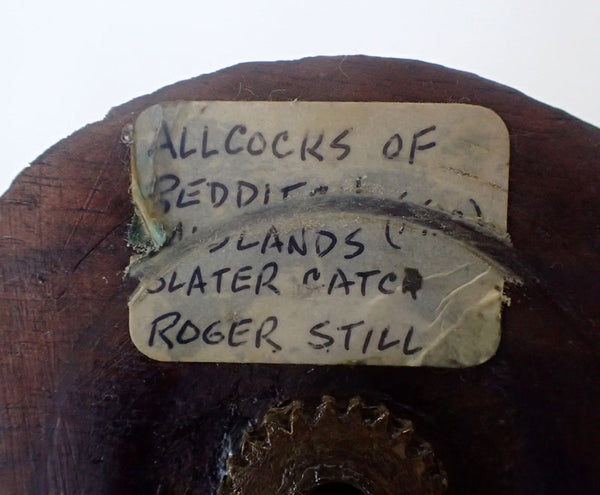 ALLCOCKS OF
REDDITCH
MIDLANDS
SLATER CATCH
ROGER STILL